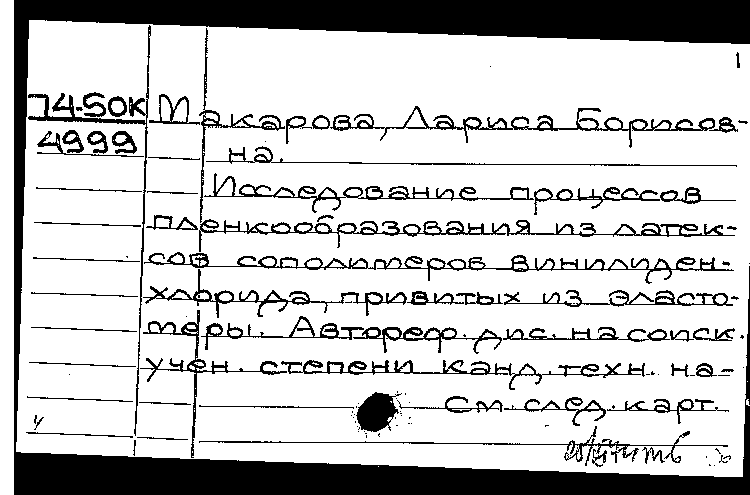 1
74-50К Макарова, Лариса Борисов-
4999
на.
Исследование процессов
пленкообразования из латек-
сов сополимеров винилиден-
хлорида, привитых из эласто-
меры. Автореф. дис. на соиск.
учен. степени канд. техн. на-
См. след. карт.